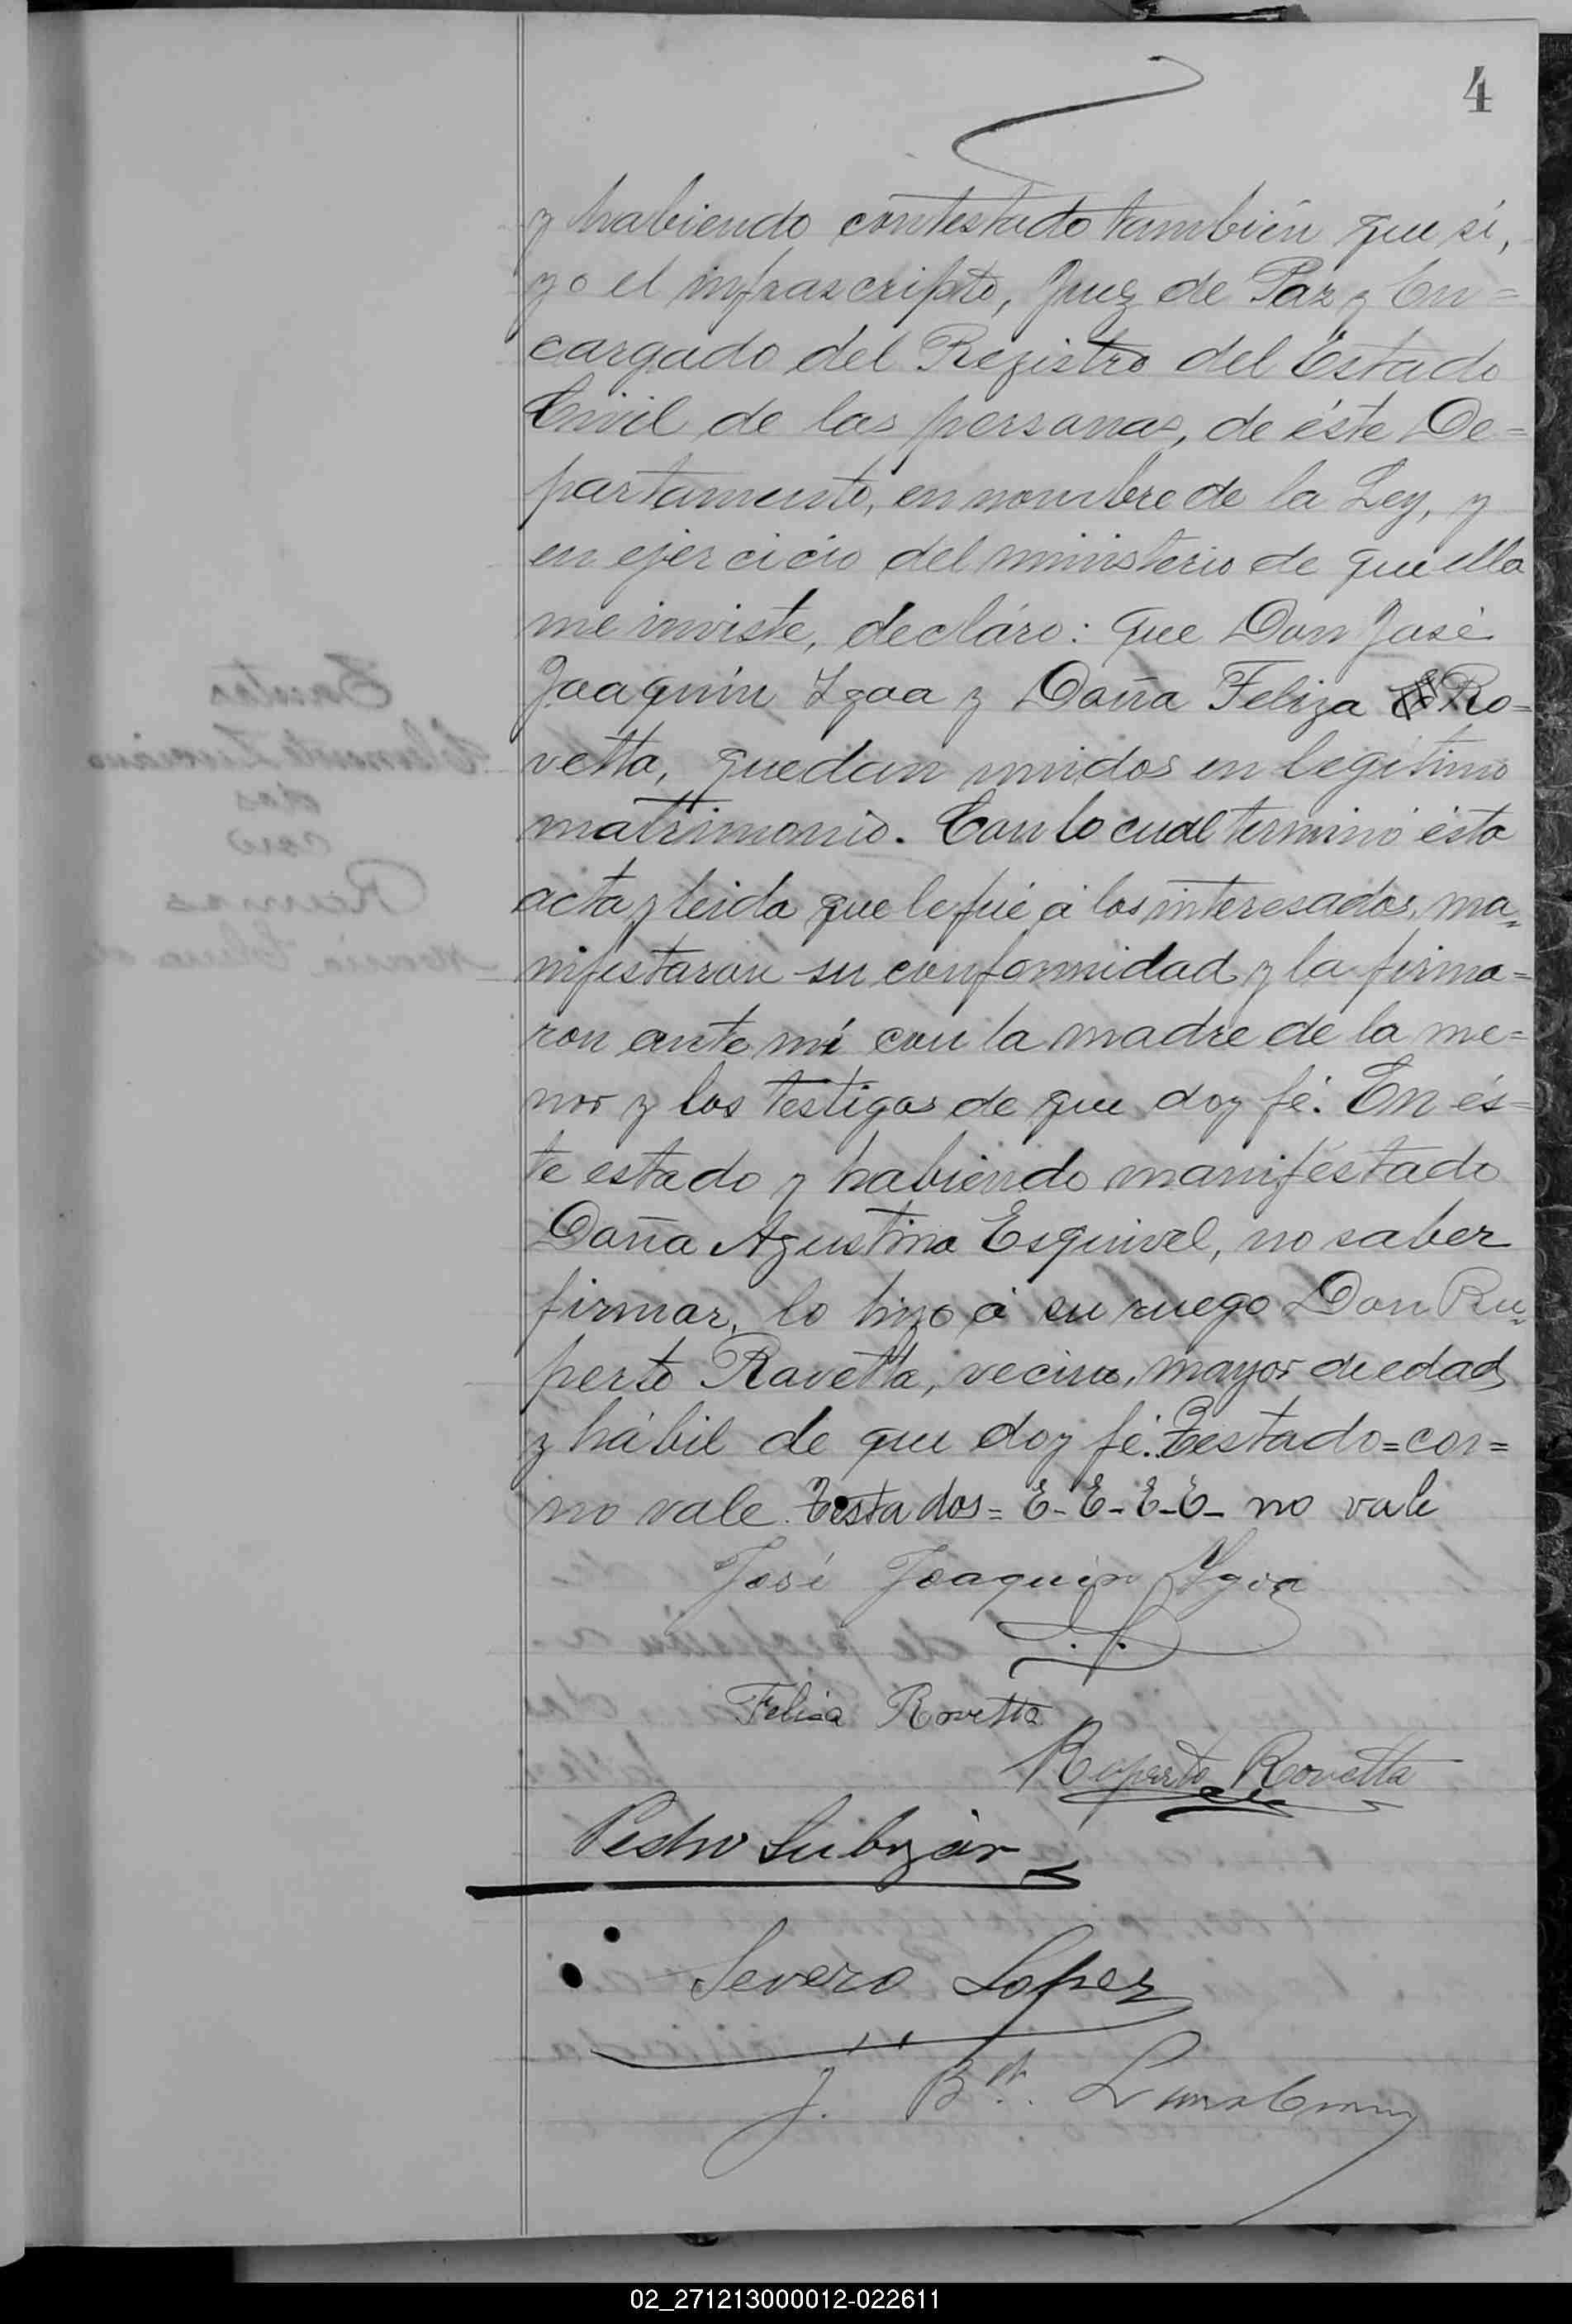 4
y habiendo contestado también que si,
yo el infrascripto, Juez de Paz y En=
cargado del Registro del Estado
Civil de las personas, de éste De=
partamento, en nombre de la Ley, y
en ejercicio del ministerio de que ella
me inviste, decláro: que Don José
Joaquin Ygoa y Doña Feliza Ro=
vetta, quedan unidos en legítimo
matrimonio. Con lo cual terminó ésta
acta y leida que le fué á los interesados, ma=
nifestaron su conformidad y la firma=
ron ante mí con la madre de la me=
nor y los testigos de que doy fé. En és=
te estado y habiendo manifestado
Doña Agustina Esquivel, no saber
firmar, lo hizo á su ruego Don Ru=
perto Rovetta, vecino, mayor de edad
y hábil de que doy fé. Testado=con=
no vale. Testados= E-E-E-E- no vale
José Joaquin Ygoa
Felisa Rovetta
Ruperto Rovetta
Pedro
Severo Lopez
J. Bta.
02_271213000012-022611